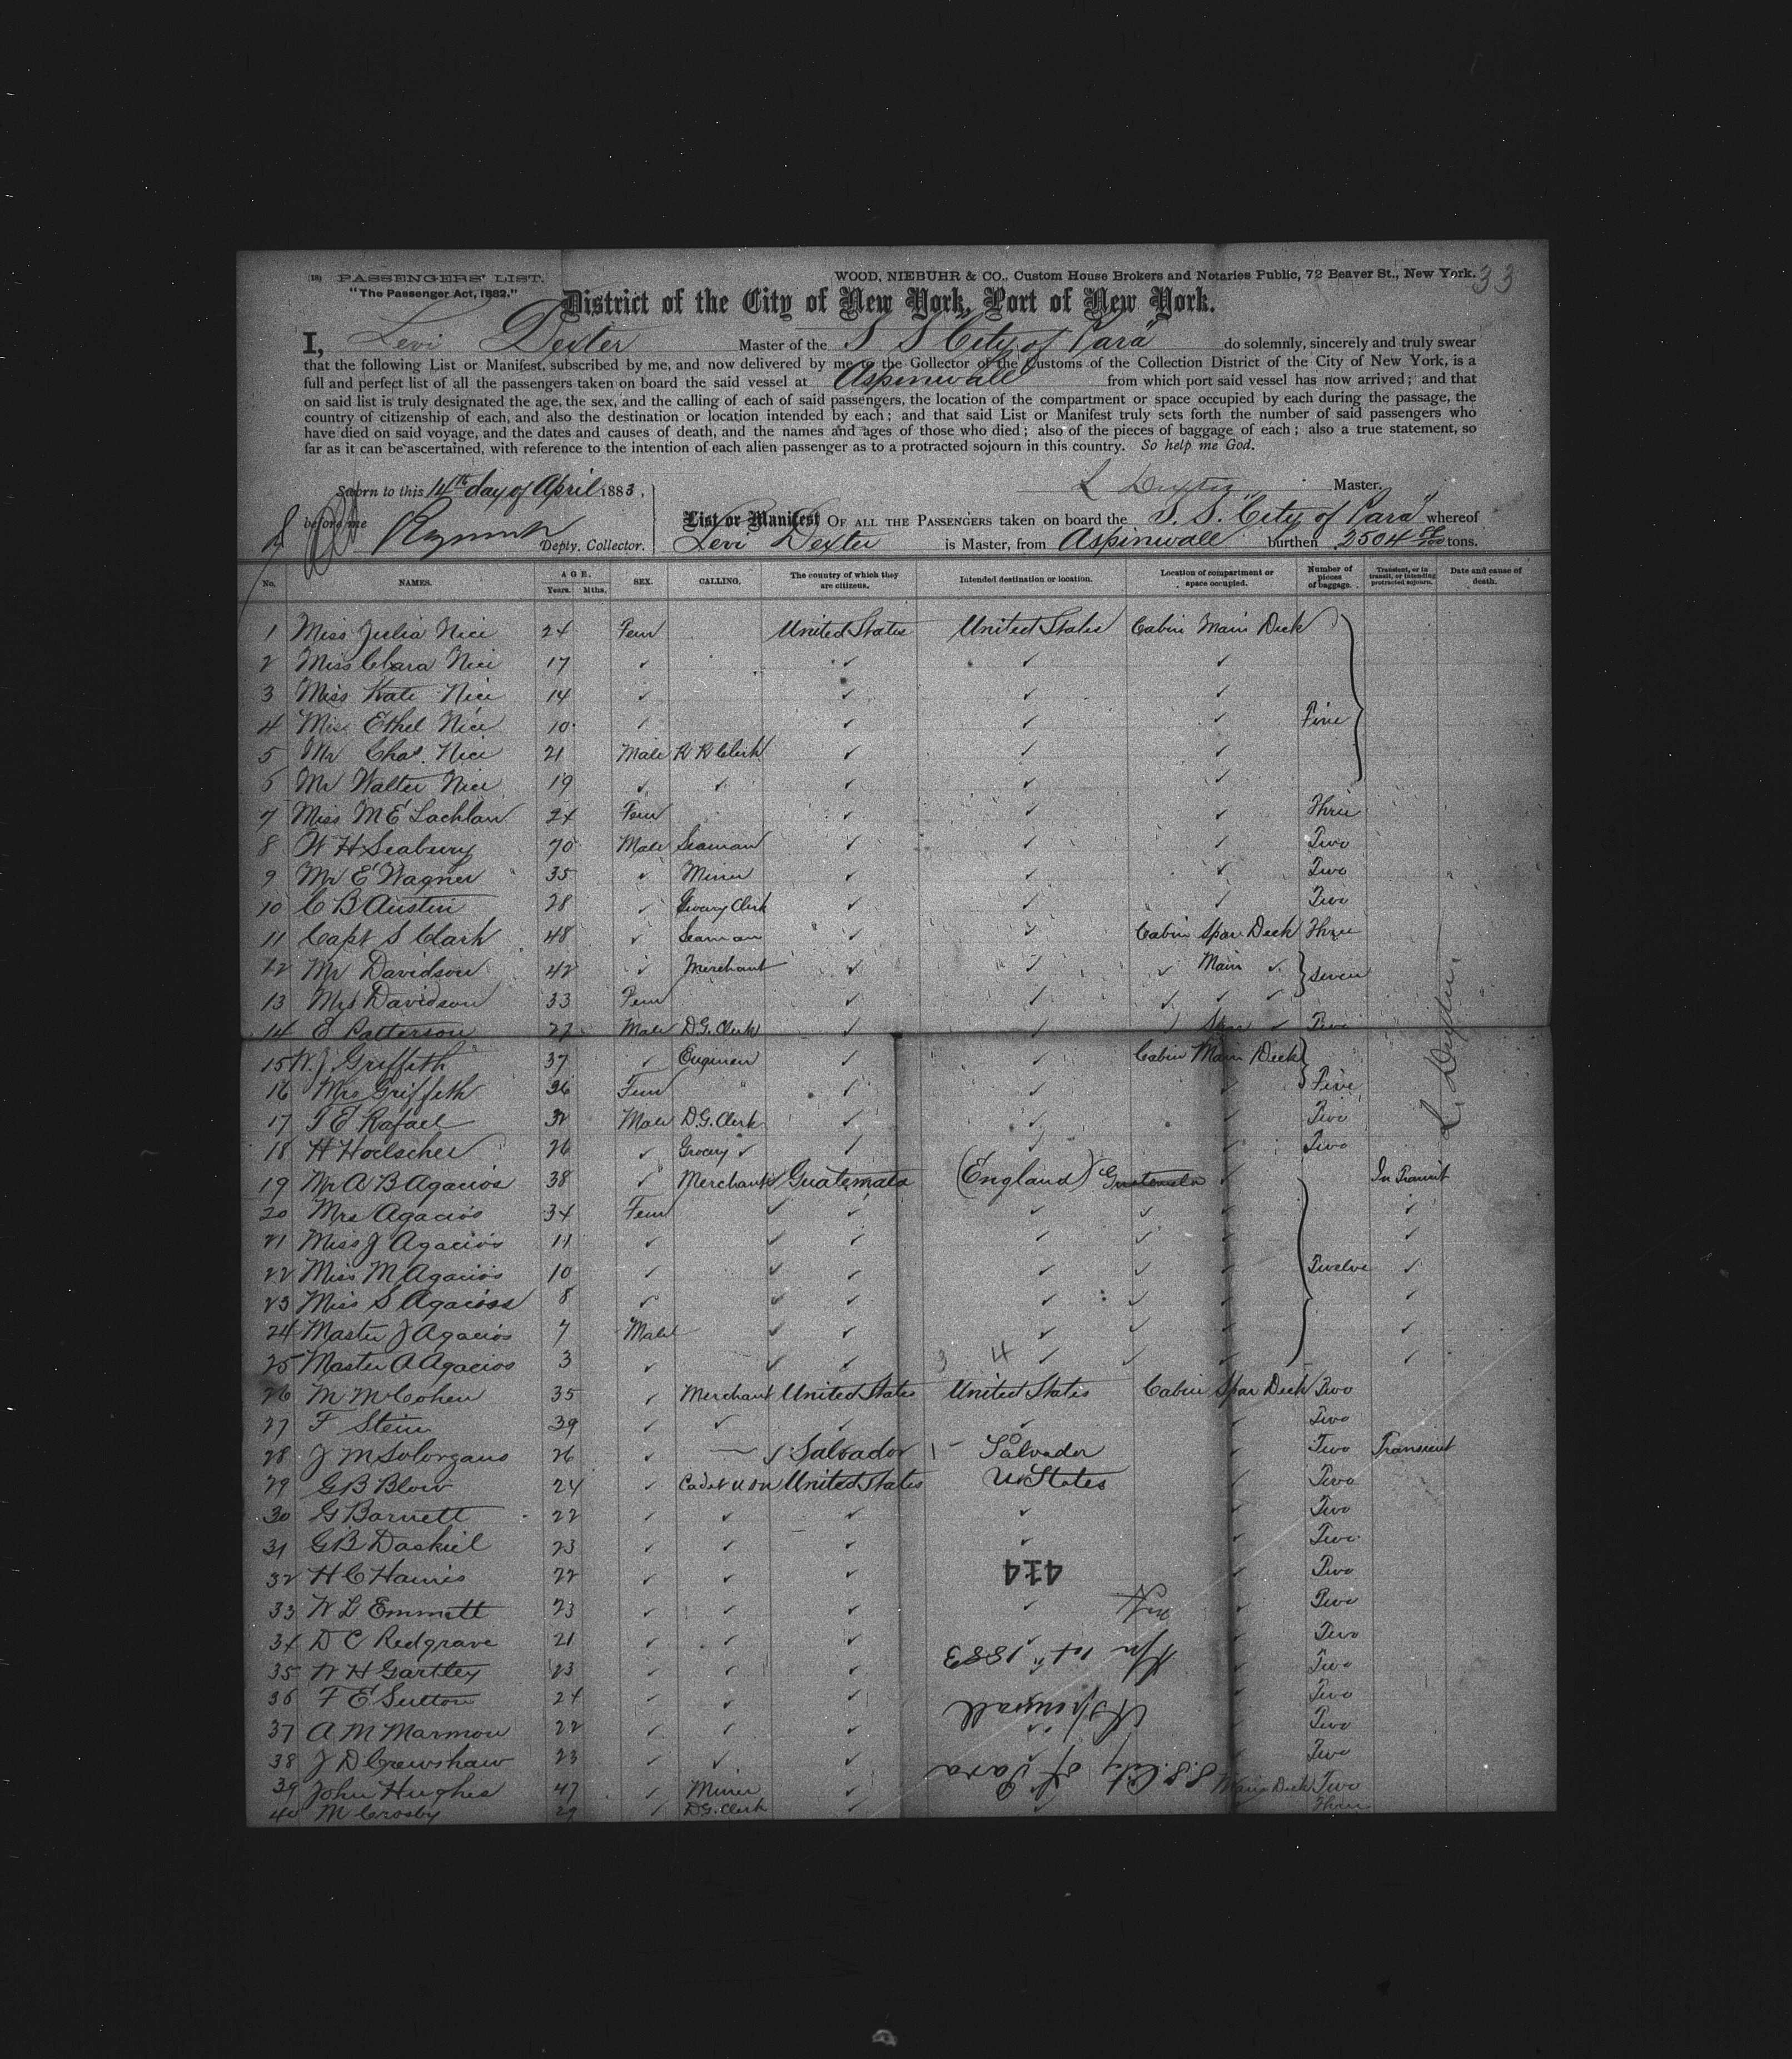 (18) PASSENGERS' LIST. WOOD, NIEBUHR & CO., Custom House Brokers and Notaries Public, 72 Beaver St., New York. 33
"The Passenger Act, 1882."
District of the City of New York, Port of New York.
I, Levi Dexter Master of the S S "City of Para" do solemnly, sincerely and truly swear
that the following List or Manifest, subscribed by me, and now delivered by me to the Collector of the Customs of the Collection District of the City of New York, is a
full and perfect list of all the passengers taken on board the said vessel at Aspinwall from which port said vessel has now arrived; and that
on said list is truly designated the age, the sex, and the calling of each of said passengers, the location of the compartment or space occupied by each during the passage, the
country of citizenship of each, and also the destination or location intended by each; and that said List or Manifest truly sets forth the number of said passengers who
have died on said voyage, and the dates and causes of death, and the names and ages of those who died; also of the pieces of baggage of each; also a true statement, so
far as it can be ascertained, with reference to the intention of each alien passenger as to a protracted sojourn in this country. So help me God.
Sworn to this 14th day of April 1883, L Dexter Master.
before me Depty. Collector.
List or Manifest OF ALL THE PASSENGERS taken on board the S. S. "City of Para" whereof
Levi Dexter is Master, from Aspinwall burthen 2504 tons.
No. NAMES. AGE. Years. Mths. SEX. CALLING. The country of which they are citizens. Intended destination or location. Location of compartment or space occupied. Number of pieces of baggage. Transient, or in transit, or intending protracted sojourn. Date and cause of death.
1 Miss Julia Nici 24 Fem United States United States Cabin Main Deck
2 Miss Clara Nici 17 ✓ ✓ ✓ ✓
3 Miss Kate Nici 14 ✓ ✓ ✓ ✓
4 Miss Ethel Nici 10 ✓ ✓ ✓ ✓ Five
5 Mr Chas. Nici 21 Male R R Clerk ✓ ✓ ✓
6 Mr Walter Nici 19 ✓ ✓ ✓ ✓ ✓
7 Miss M E Lachlan 24 Fem ✓ ✓ ✓ Three
8 W H Seabury 70 Male Seaman ✓ ✓ ✓ Two
9 Mr E Wagner 35 ✓ Miner ✓ ✓ ✓ Two
10 C B Austin 28 ✓ Grocery Clerk ✓ ✓ ✓ Two
11 Capt S Clark 48 ✓ Seaman ✓ ✓ Cabin Spar Deck Three
12 Mr Davidson 42 ✓ Merchant ✓ ✓ ✓ Main ✓ Seven
13 Mrs Davidson 33 Fem ✓ ✓ ✓ ✓ ✓
14 E Patterson 27 Male D.G. Clerk ✓ ✓ ✓ Spar ✓ Two
15 W. J Griffith 37 ✓ Engineer ✓ ✓ Cabin Main Deck
16 Mrs Griffith 36 Fem " ✓ ✓ ✓ Five
17 T E Rafael 32 Male D.G. Clerk ✓ ✓ ✓ Two
18 H Hoelscher 26 ✓ Grocery ✓ ✓ ✓ ✓ Two
19 Mr A B Agacios 38 ✓ Merchant Guatemala (England) Guatemala ✓ In Transit
20 Mrs Agacios 34 Fem ✓ ✓ ✓ ✓ ✓ ✓
21 Miss J Agacios 11 ✓ ✓ ✓ ✓ ✓ ✓ ✓
22 Miss M Agacios 10 ✓ ✓ ✓ ✓ ✓ ✓ Twelve ✓
23 Miss S Agacioss 8 ✓ ✓ ✓ ✓ ✓ ✓ ✓
24 Master J Agacios 7 Male ✓ ✓ ✓ ✓ ✓ ✓
25 Master A Agacios 3 ✓ ✓ ✓ 3 4 ✓ ✓ ✓ ✓
26 M M Cohen 35 ✓ Merchant United States United States Cabin Spar Deck Two
27 F Stein 39 ✓ ✓ ✓ ✓ ✓ Two
28 J M Solorgano 26 ✓ — Salvador Salvador ✓ Two Transient
29 G B Blow 24 ✓ Cadet U S N United States U States ✓ Two
30 G Barnett 22 ✓ ✓ ✓ ✓ ✓ Two
31 G B Daskiel 23 ✓ ✓ ✓ ✓ ✓ Two
32 H C Haines 22 ✓ ✓ ✓ 414 ✓ Two
33 W L Emmett 23 ✓ ✓ ✓ ✓ ✓ Two
34 D C Redgrave 21 ✓ ✓ ✓ ✓ ✓ Two
35 W H Gartley 23 ✓ ✓ ✓ ✓ ✓ Two
36 F E Sutton 24 ✓ ✓ ✓ ✓ Two
37 A M Marmon 22 ✓ ✓ ✓ Two
38 J D Crewshaw 23 ✓ ✓ ✓ ✓ Two
39 John Hughes 47 ✓ Miner ✓ Main Deck Two
40 M Crosby 29 ✓ D.G. Clerk ✓ ✓ ✓ Three
L. Dexter
S.S. City of Para
Aspinwall
1883